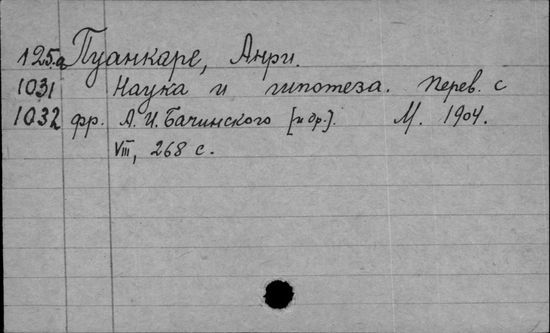 125a Пуанкаре, Анри.
1031 Наука и гипотеза. Перев. с
1032 фр. А.И. Бачинского [и др.]. М. 1904.
VIII, 268 с.